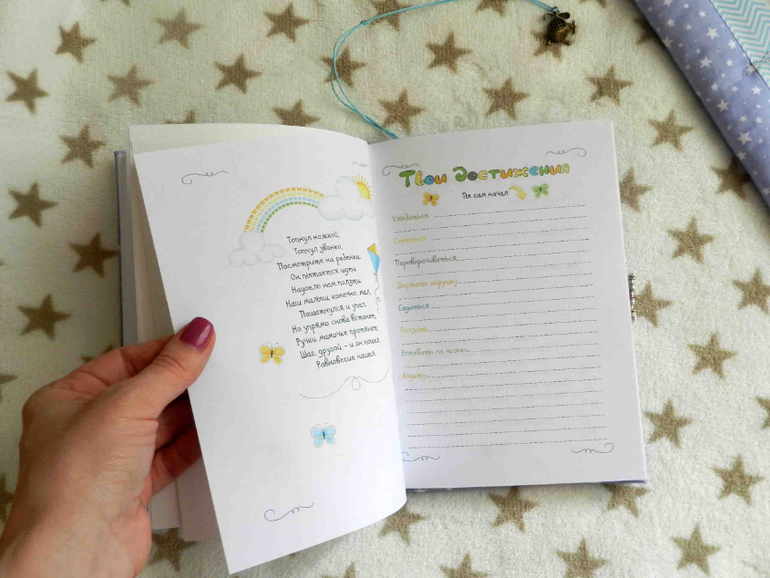 Топнул ножкой,
Топнул звонко,
Посмотрите на ребенка,
Он пытается идти
Надоело нам ползти
Наш малыш, конечно, мал
Пошатнулся и упал
Но упрямо снова встанет,
Ручки мамочке протянет,
Шаг, другой – и он пошел
Равновесие нашел
Твои достижения
Ты сам начал
Улыбаться
Смеяться
Переворачиваться
Держать игрушку
Садиться
Ползать
Вставать на ножки
Ходить